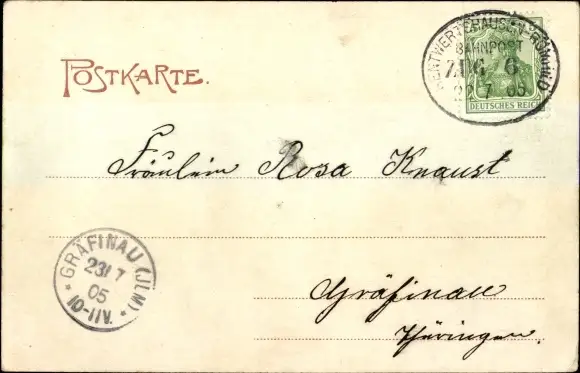 POSTKARTE.
RENTWERTSHAUSEN-RÖMHILD
BAHNPOST
ZUG 6
22 7 05
DEUTSCHES REICH
Fräulein Rosa Knaust
GRÄFINAU (ILM)
23/7
05
10-11V.
Gräfinau
Thüringen.